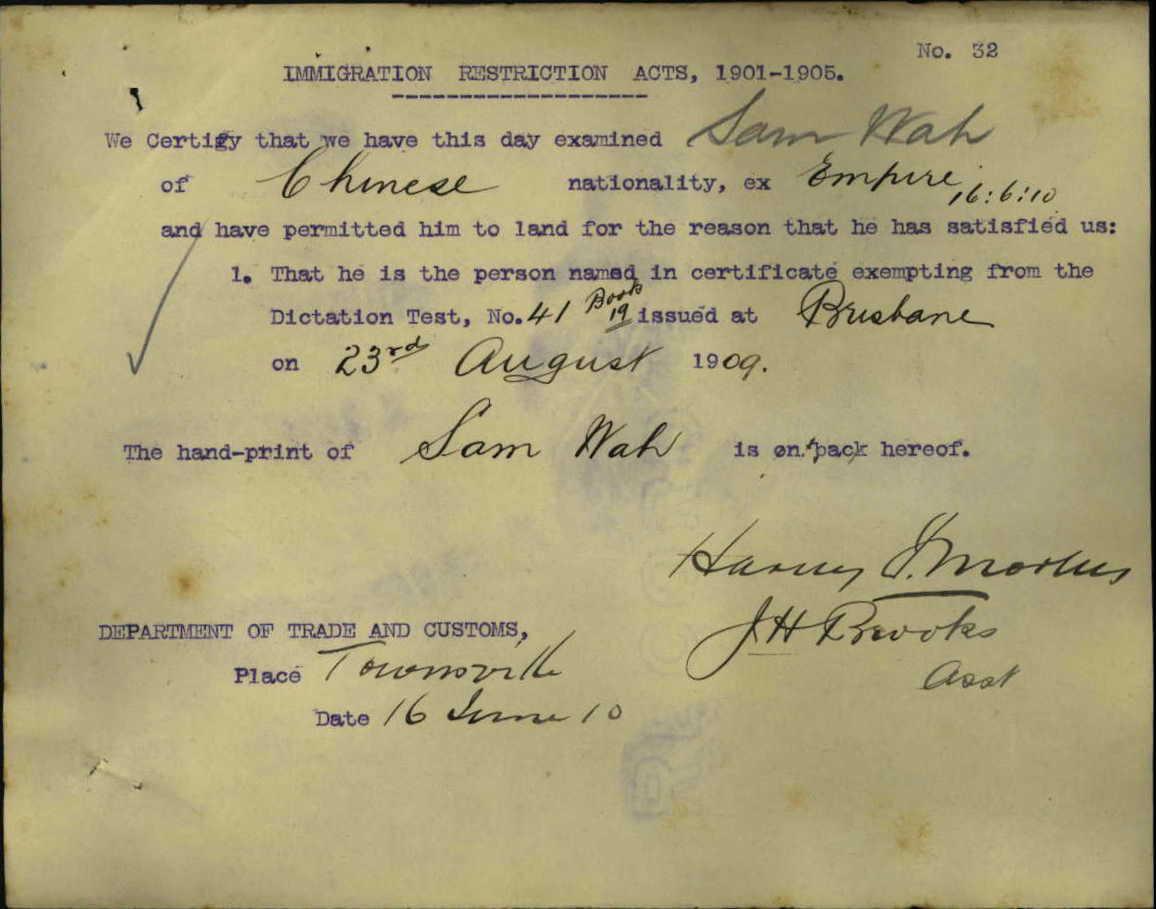 No. 32
IMMIGRATION RESTRICTION ACTS, 1901-1905.
We Certify that we have this day examined Sam Wah
of Chinese nationality, ex Empire 16:6:10
and have permitted him to land for the reason that he has satisfied us:
1. That he is the person named in certificate exempting from the
Dictation Test, No. 41 Book 19 issued at Brisbane
on 23rd August 1909.
The hand-print of Sam Wah is on back hereof.
J H Brooks
Asst
DEPARTMENT OF TRADE AND CUSTOMS,
Place Townsville
Date 16 June 10